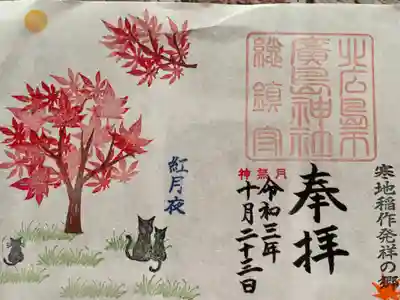 寒地稲作発祥の郷
奉拝
北広島市
廣島神社
総鎮守
神無月
令和三年
十月二十三日
紅月夜